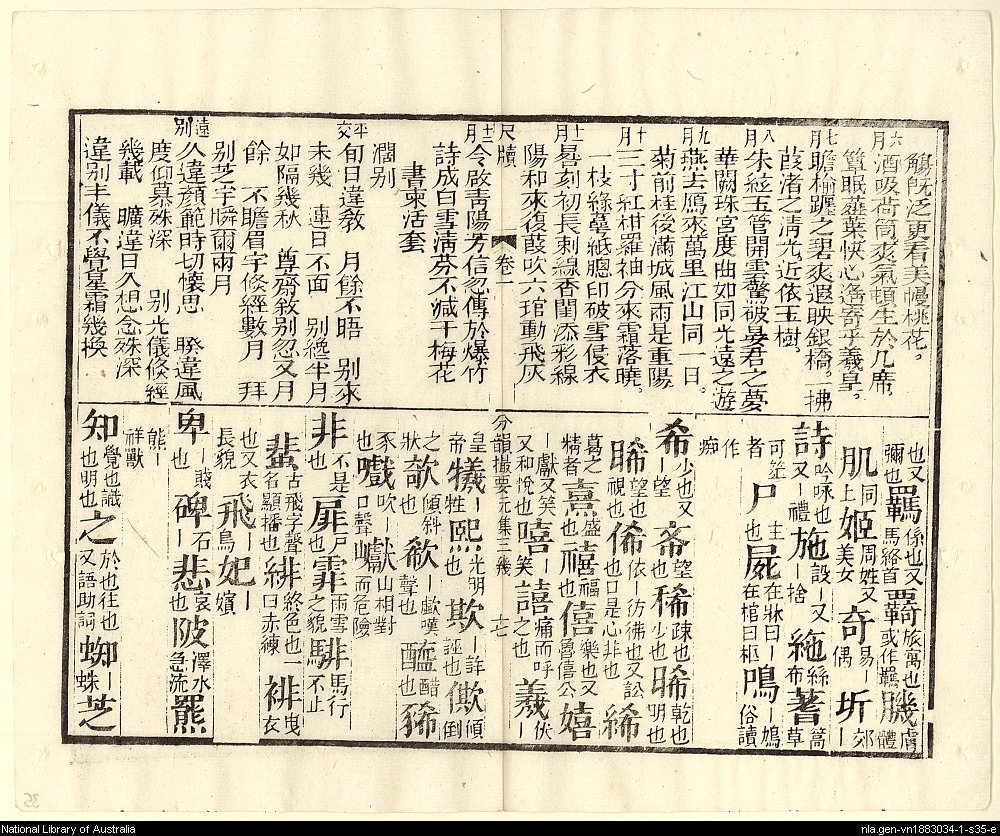 觴既泛更看美幔桃花。
六月
酒吸荷筒爽氣頓生於几席。
簟眠薤葉快心逢寄乎羲皇。
七月
瞻榆躔之碧爽遐映銀橋。一拂
葭渚之清光近依玉樹。
八月
朱絃玉管開雲驚破晏君之夢
華闕珠宮度曲如同光遠之遊
九月
燕去鴈來萬里江山同一日。
菊前桂後滿城風雨是重陽
十月
三寸紅柑羅袖分來霜落曉。
一枝綠萼紙牕印破雪侵衣
十一月
晷刻初長刺線香閨添彩線
陽和來復葭吹六琯動飛灰
尺牘 卷一
十二月
令啟青陽芳信忽傳於爆竹
詩成白雪清芬不減于梅花
書柬活套
濶别
平交
旬日違教 月餘不晤 别來
未幾 連日不面 别纔半月
如隔幾秋 尊齋敘别忽又月
餘 不瞻眉宇倏經數月 拜
别芝宇瞬爾兩月
遠别
久違顏範時切懷思 睽違風
度仰慕殊深 别光儀倏經
幾載 曠違日久想念殊深
違别丰儀不覺星霜幾換
也又彌也 羈 係也又馬絡首 覊 旅寓也或作羈 膚體
肌 同上 姬 周姓又美女 奇 易一偶 圻 一郊
詩 吟咏也又一禮 施 設一又一捨 絁 絲布 蓍 筮草
可筮者 尸 主也 屍 在牀曰一在棺曰柩 鳲 一鳩俗讀
作痴
希 少也又一望 望也 稀 疎也少也 晞 乾也明也
睎 一望也視也 俙 依一彷彿也又訟也口是心非也 絺
葛之精者 熹 盛也 禧 福也 僖 樂也又魯僖公 嬉
一獻又笑又和悅也 嘻 笑 譆 痛而呼之也 羲 伏一
分韻撮要元集三幾 十七
皇一帝 犧 一牲 熙 光明也 欺 一詐誣也 僛 傾倒
之狀 欹 傾斜也 欷 一歔嘆聲也 醯 醋也 豨
豕也 戲 吹一口聲 巇 山相對而危險
非 不是也 扉 戸也 霏 雨雪之貌 騑 馬行不止
蜚 古飛字聲名顯播也 緋 終色也一曰赤練 裶 曳衣
也又衣長貌 飛 一鳥 妃 一嬪
卑 一賤 碑 石一 悲 哀也 陂 澤水急流 羆
熊一祥獸
知 覺也識也明也 之 於也往也又語助詞 蜘 一蛛 芝
National Library of Australia
nla.gen-vn1883034-1-s35-e